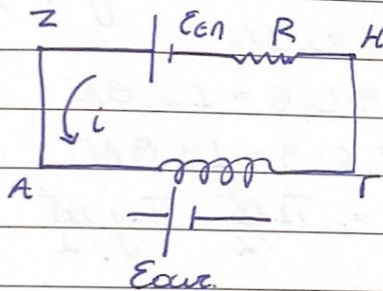 Z Eεπ R H
i
A Γ
Εαυτ.